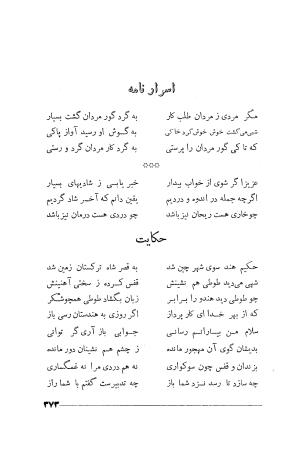 اسرار نامه
مگر مردی ز مردان طلب کار به گرد گور مردان گشت بسیار
شبی می‌گشت خوش خوش گرد خاکی به گوش او رسید آواز پاکی
که تا کی گور مردان را پرستی به گرد کار مردان گرد و رستی
***
عزیزا گر شوی از خواب بیدار خبر یابی ز شادیهای بسیار
اگرچه جمله در اندوه و دردیم یقین دانم که آخر شاد گردیم
چو خاری هست ریحان نیز باشد چو دردی هست درمان نیز باشد
حکایت
حکیم هند سوی شهر چین شد به قصر شاه ترکستان زمین شد
شهی می‌دید طوطی هم نشینش قفس کرده ز سختی آهنینش
چو طوطی دید هندو را برابر زبان بگشاد طوطی همچو شکر
که از بهر خدا ای کار پرداز اگر روزی به هندستان رسی باز
سلام من بیارانم رسانی جوابی باز آری گر توانی
بدیشان گوی آن مهجور مانده ز چشم هم نشینان دور مانده
بزندان و قفس چون سوکواری نه هم دردی مرا نه غمگساری
چه سازد تا رسد نزد شما باز چه تدبیرست گفتم با شما راز
۳۷۳